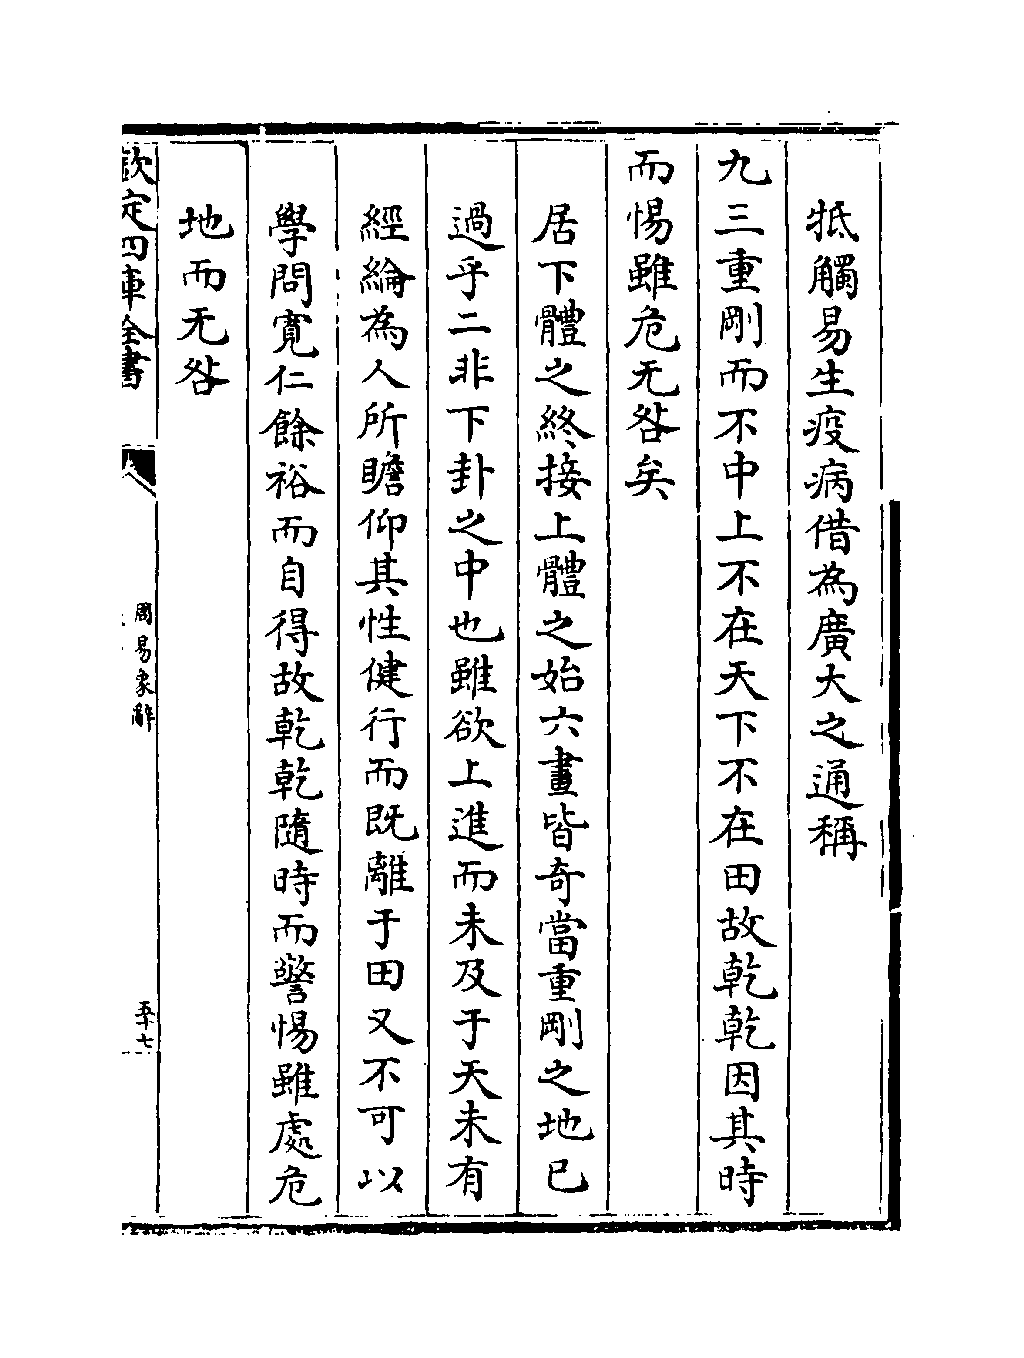 牴觸易生疫病借為廣大之通稱
九三重剛而不中上不在天下不在田故乾乾因其時
而惕雖危无咎矣
居下體之終接上體之始六畫皆奇當重剛之地已
過乎二非下卦之中也雖欲上進而未及于天未有
經綸為人所瞻仰其性健行而既離于田又不可以
學問寛仁餘裕而自得故乾乾隨時而警惕雖處危
地而无咎
欽定四庫全書
周易象辭
五十七